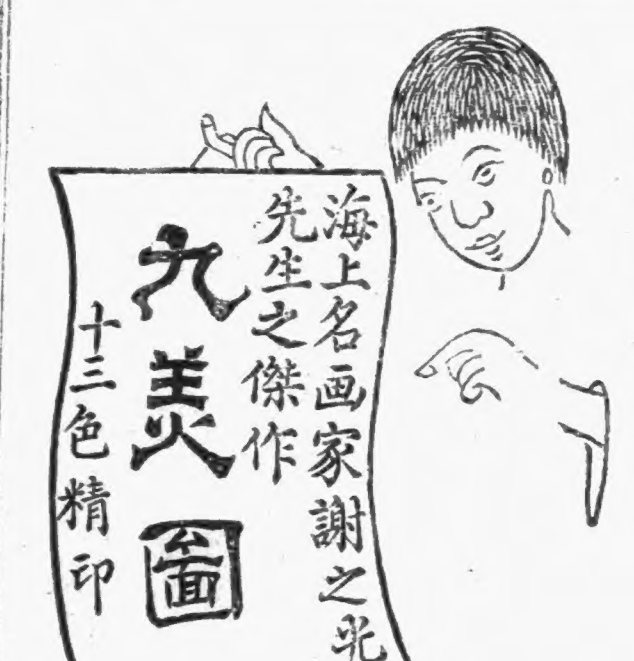 海上名画家謝之光
先生之傑作
九美圖
十三色精印